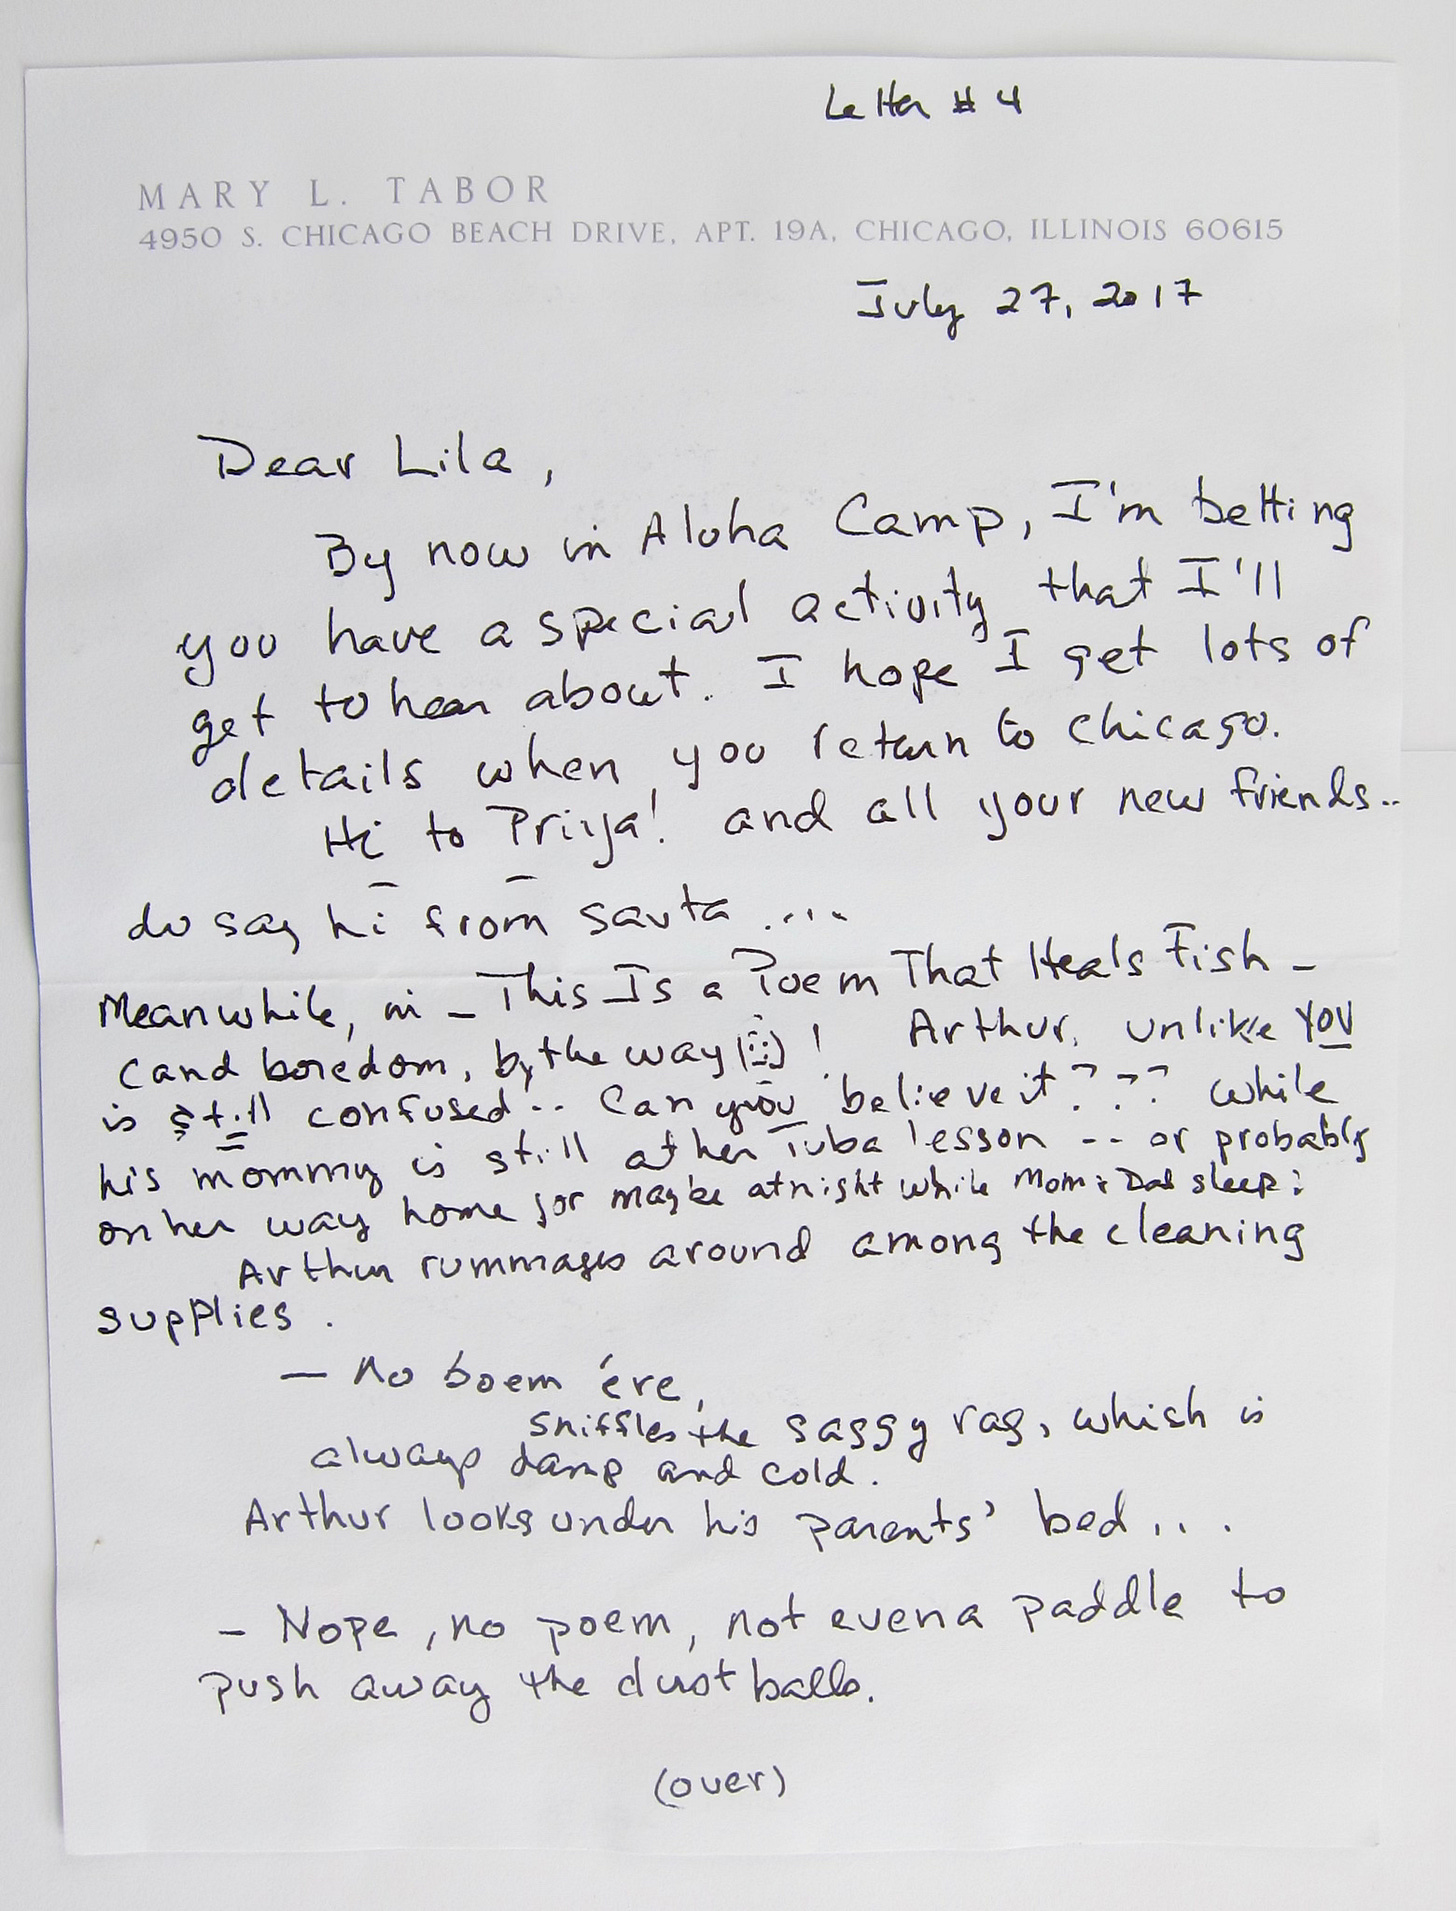 Letter # 4
MARY L. TABOR
4950 S. CHICAGO BEACH DRIVE, APT. 19A, CHICAGO, ILLINOIS 60615
July 27, 2017
Dear Lila,
By now in Aloha Camp, I'm betting
you have a special activity that I'll
get to hear about. I hope I get lots of
details when you return to Chicago.
Hi to Priya! and all your new friends..
do say hi from Savta ....
Meanwhile, in – This Is a Poem That Heals Fish –
(and boredom, by the way ! Arthur, unlike YOU
is still confused... Can you believe it??? While
his mommy is still at her Tuba lesson -- or probably
on her way home for maybe at night while Mom & Dad sleep:
Arthur rummages around among the cleaning
supplies.
— No boem 'ere,
sniffles the saggy rag, whish is
always damp and cold.
Arthur looks under his parents' bed...
– Nope, no poem, not even a paddle to
push away the dust balls.
(over)